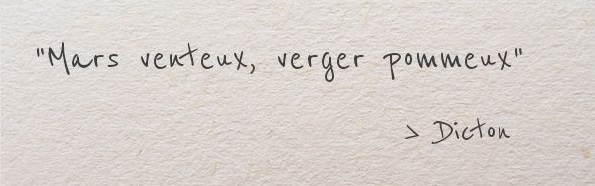 "Mars venteux, verger pommeux"
> Dicton